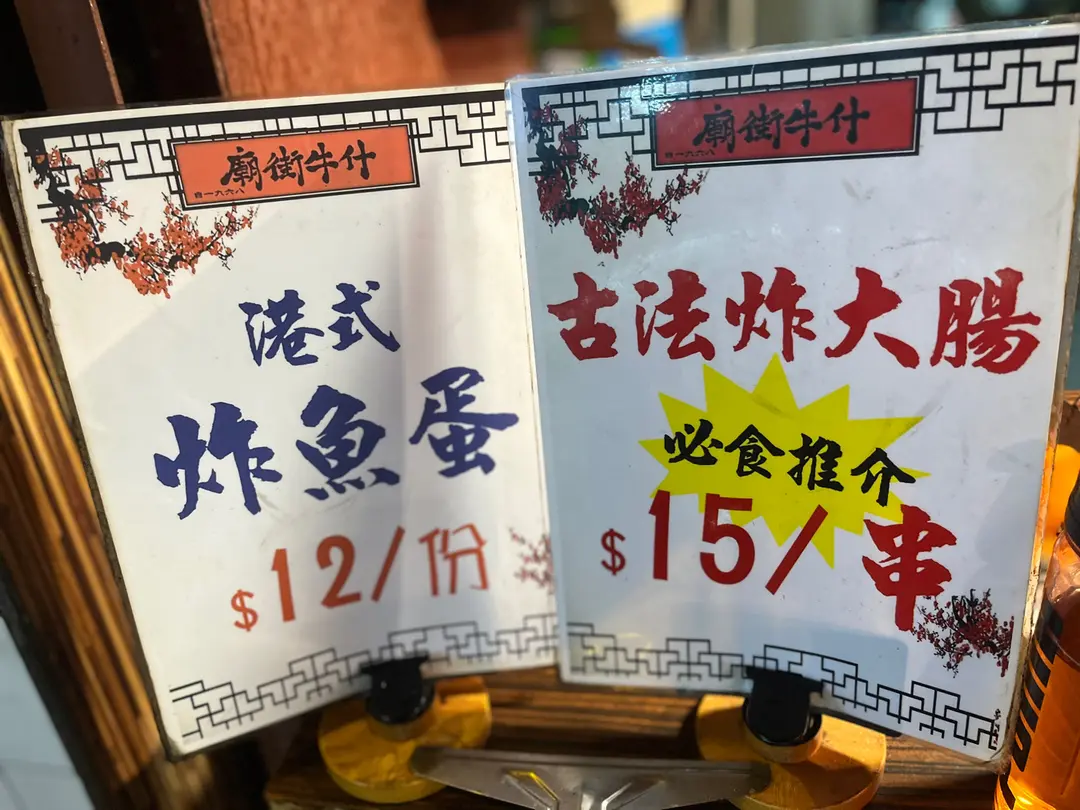 廟街牛什
自一九六八
港式
炸魚蛋
$12/份
廟街牛什
自一九六八
古法炸大腸
必食推介
$15/串